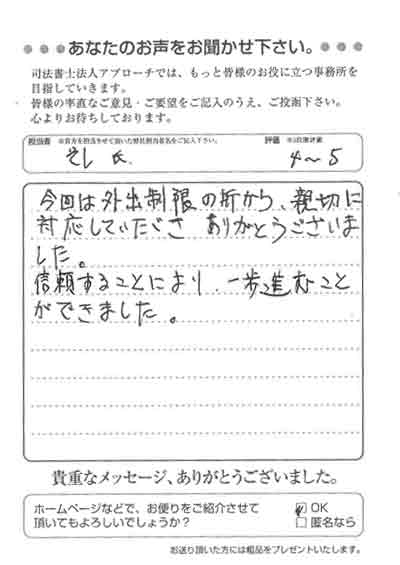 あなたのお声をお聞かせ下さい。
司法書士法人アプローチでは、もっと皆様のお役に立つ事務所を
目指していきます。
皆様の率直なご意見・ご要望をご記入のうえ、ご投函下さい。
心よりお待ちしております。
担当者 ※貴方を担当させて頂いた弊社担当者名をご記入下さい。 評価 ※5段階評価
氏 4~5
今回は外出制限の折から、親切に
対応していただき ありがとうございま
した。
信頼することにより、一歩進むこと
ができました。
貴重なメッセージ、ありがとうございました。
ホームページなどで、お便りをご紹介させて
頂いてもよろしいでしょうか?
OK
匿名なら
お送り頂いた方には粗品をプレゼントいたします。